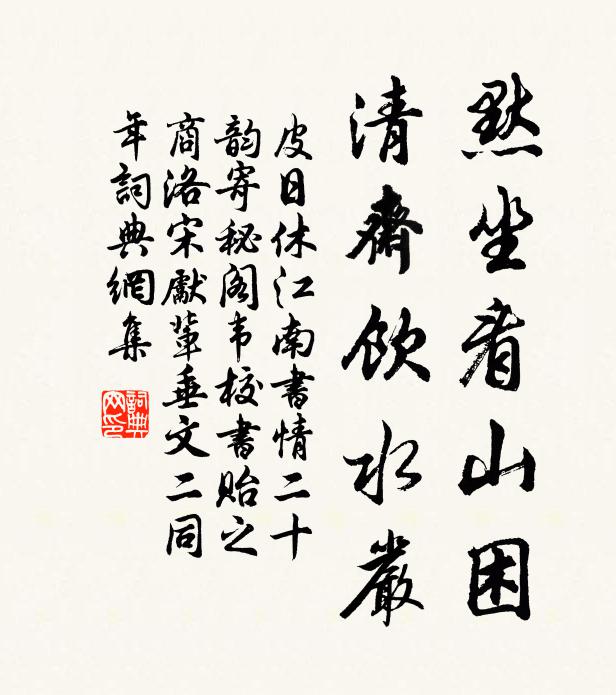 默坐看山困
清齋飲水嚴
皮日休江南書情二十
韵寄秘阁韦校書貽之
商洛宋獻軰垂文二同
年詞典網集
詞典网印